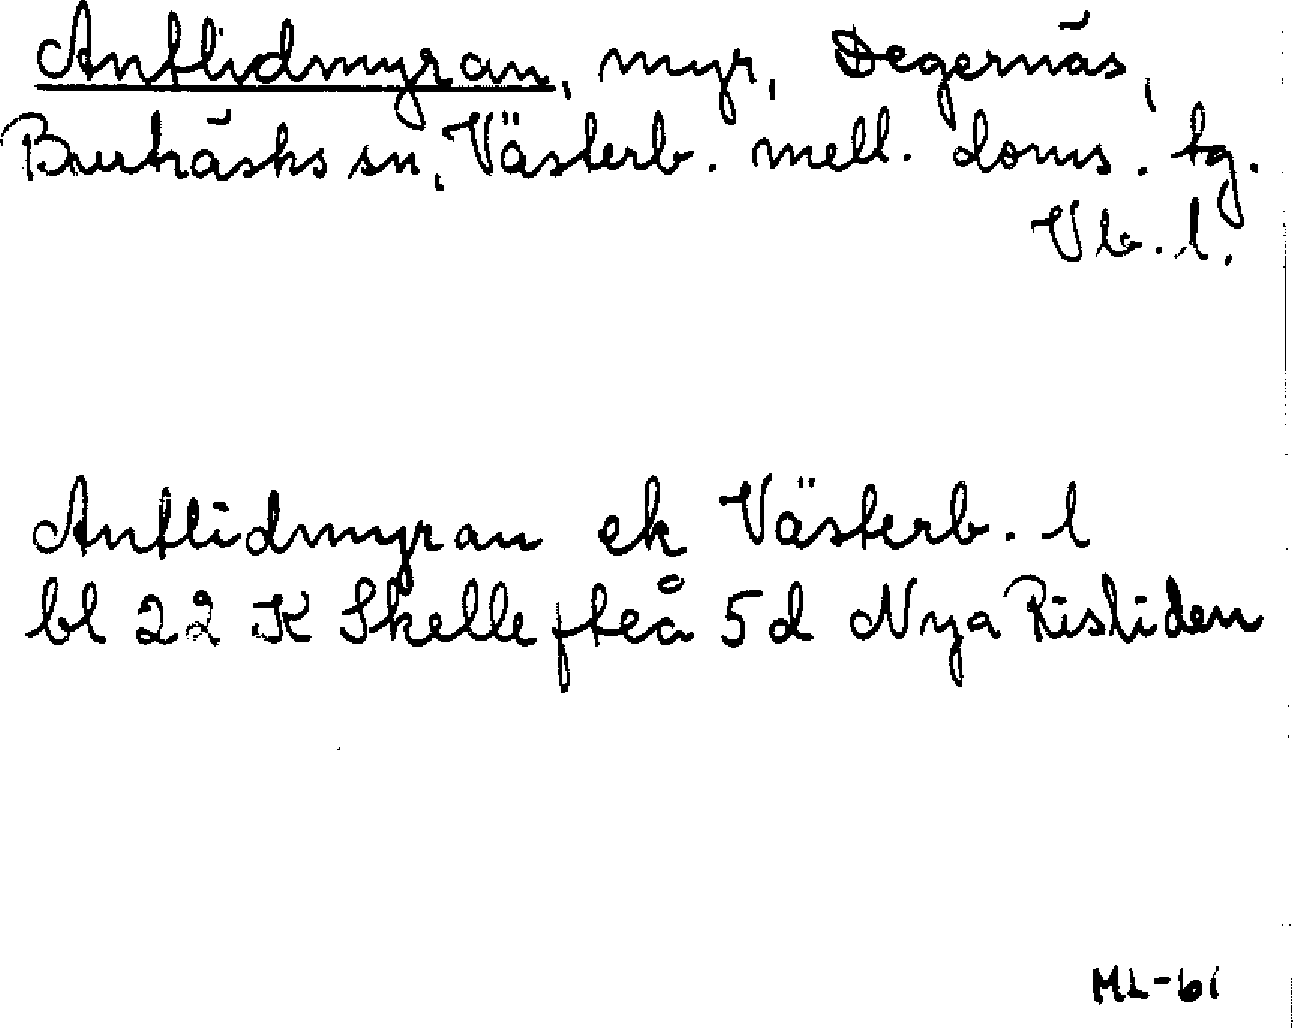 Antlidmyran, myr, Degernäs,
Burträsks sn, Västerb. mell. doms. tg.
Vb. l.
Antlidmyran ek Västerb. l
bl 22 K Skellefteå 5d Nya Risliden
ML-61